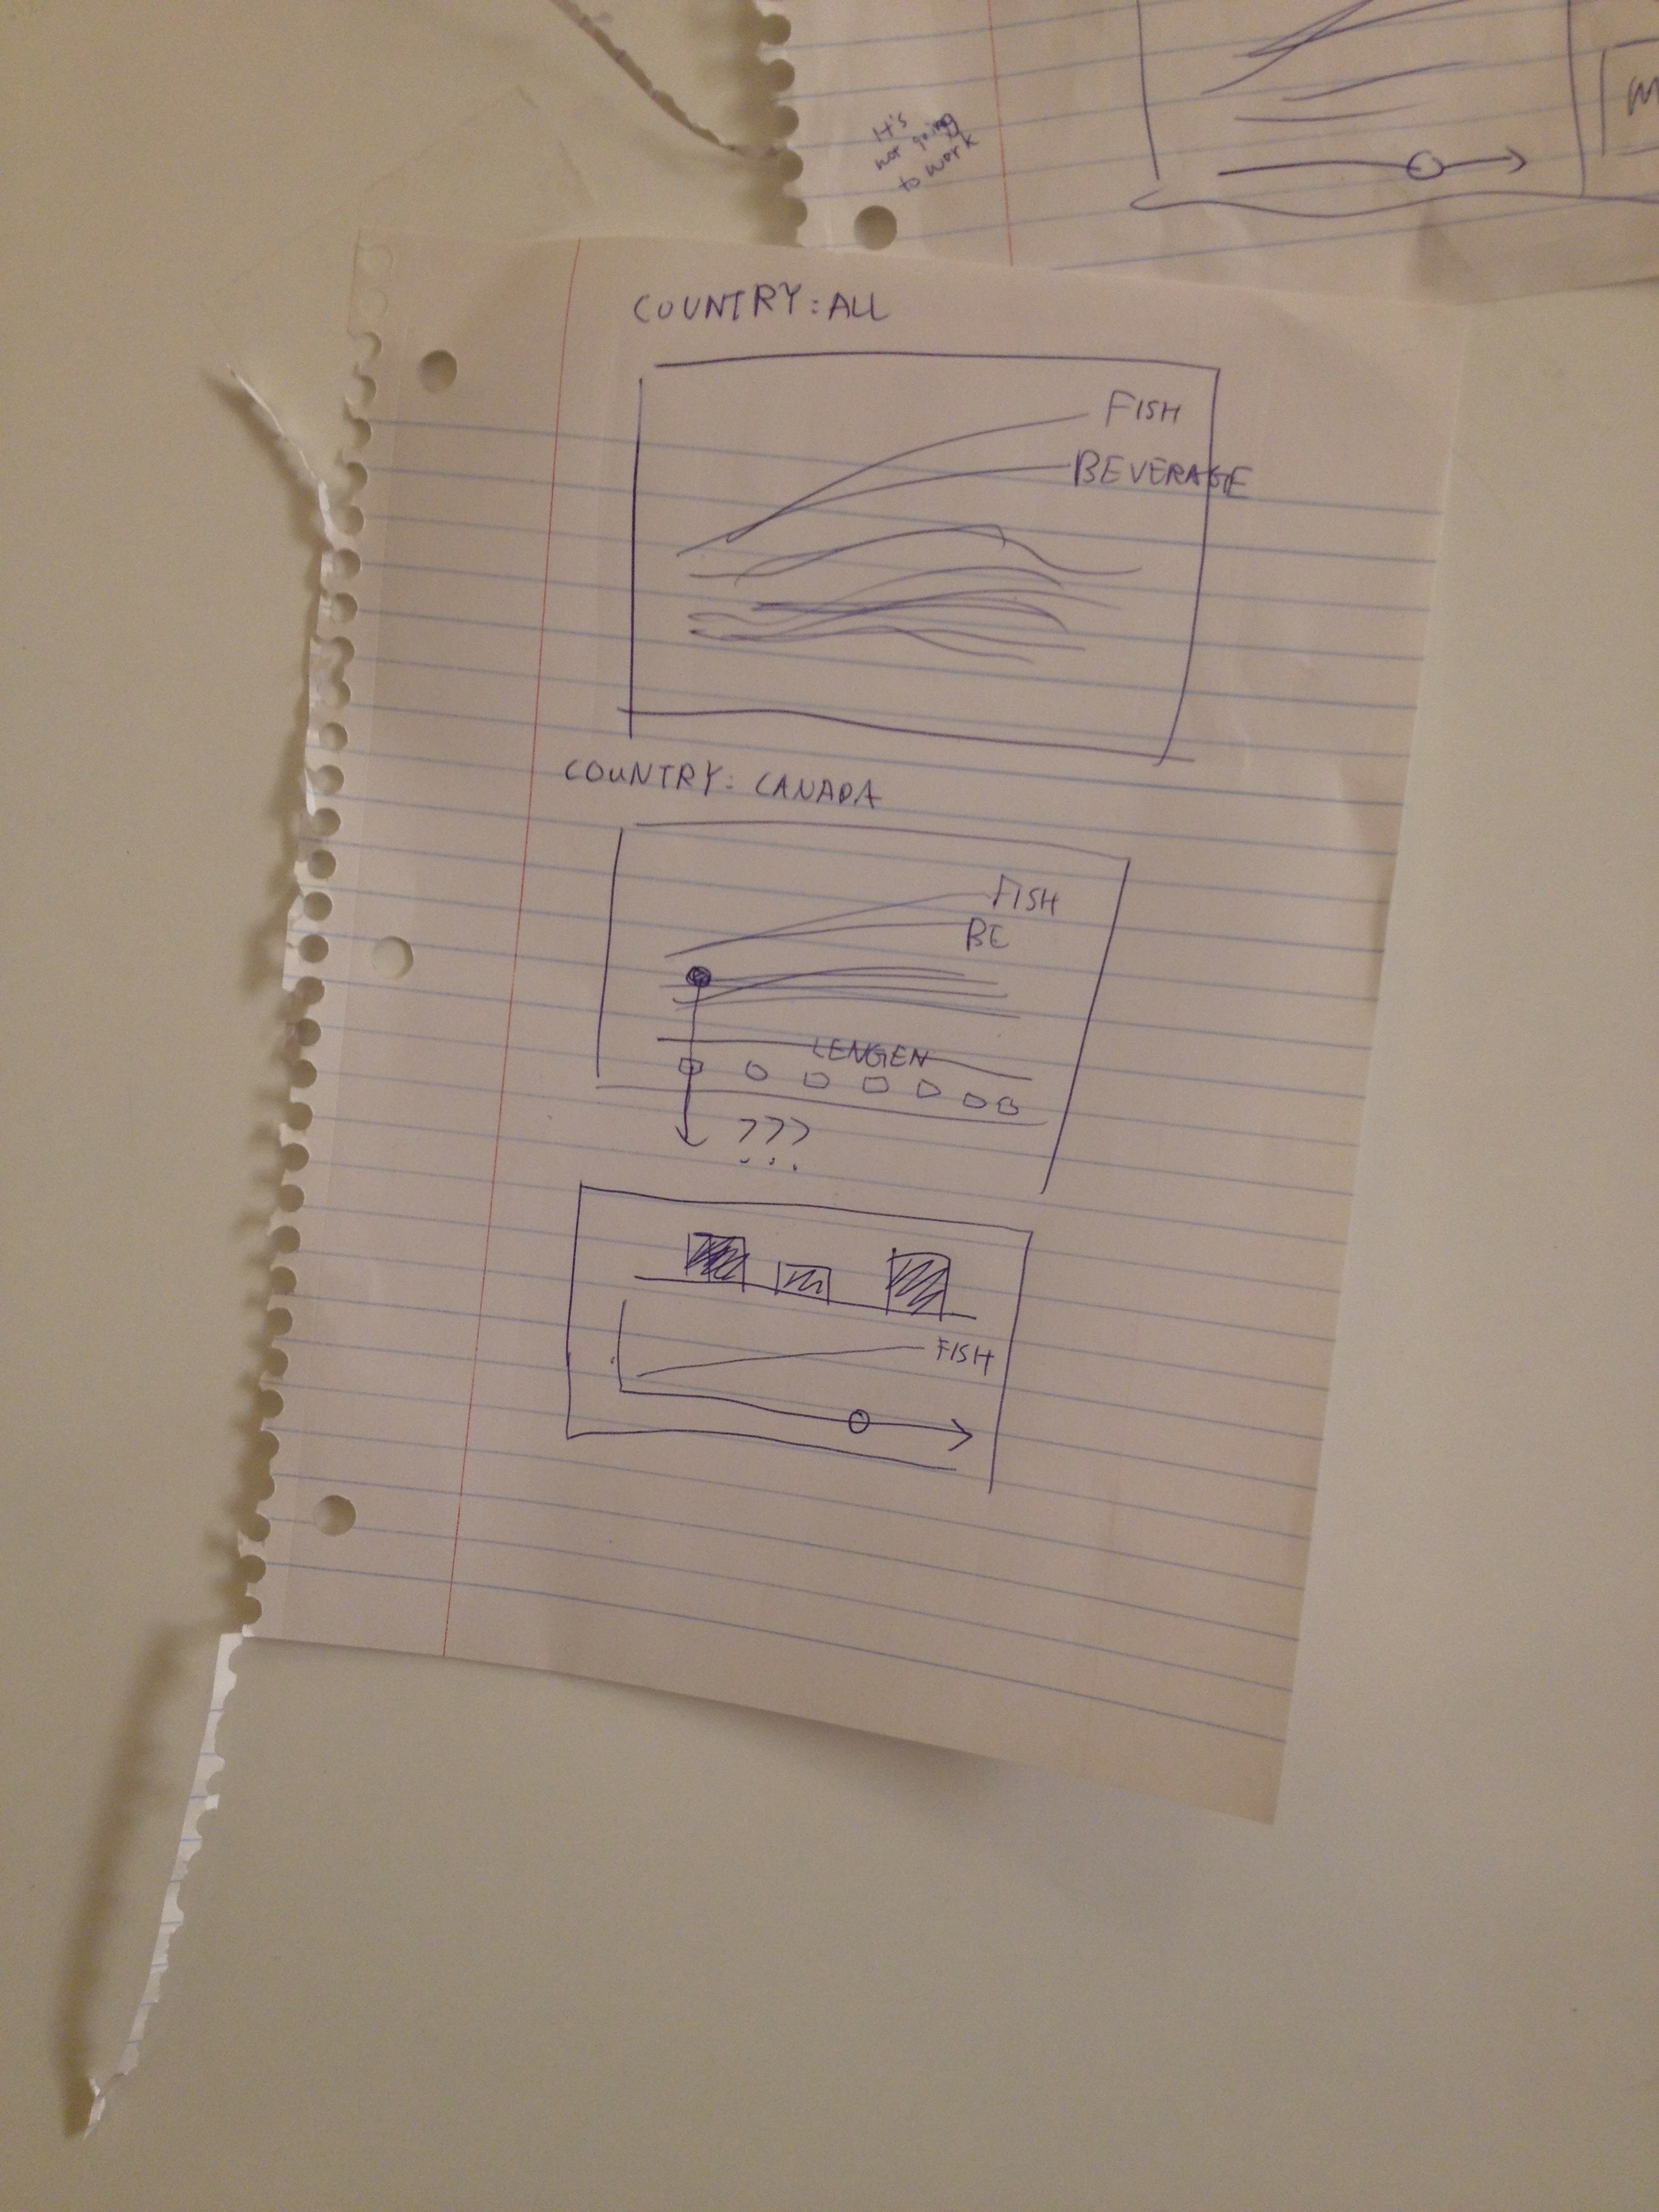 It's
not going
to work
COUNTRY: ALL
FISH
BEVERAGE
COUNTRY: CANADA
FISH
BE
LENGEN
???
FISH